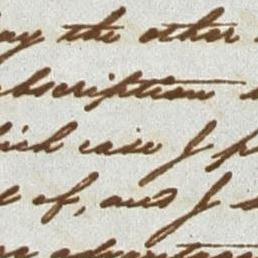 ay the other
ubscription
hich case I p
of, and I s